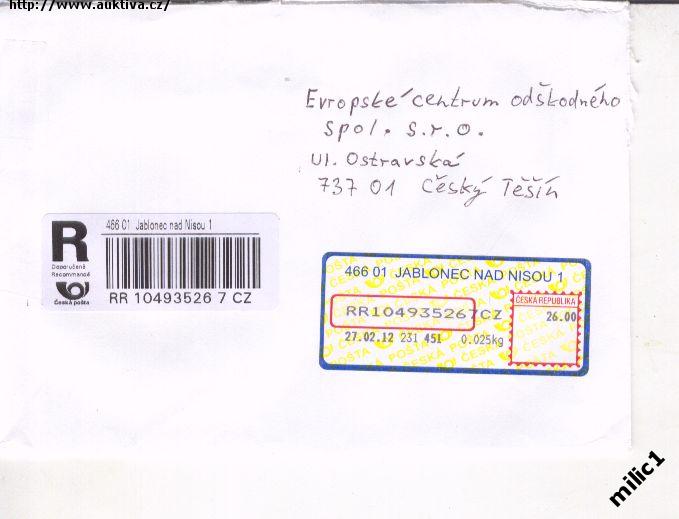 http://www.auktiva.cz/
Evropské centrum odškodného
spol. s.r.o.
ul. Ostravská
737 01 Český Těšín
R
Doporučeně
Recommandé
Česká pošta
466 01 Jablonec nad Nisou 1
RR 10493526 7 CZ
466 01 JABLONEC NAD NISOU 1
RR104935267CZ
ČESKÁ REPUBLIKA
26.00
27.02.12 231 451 0.025kg
ČESKÁ POŠTA
milic1